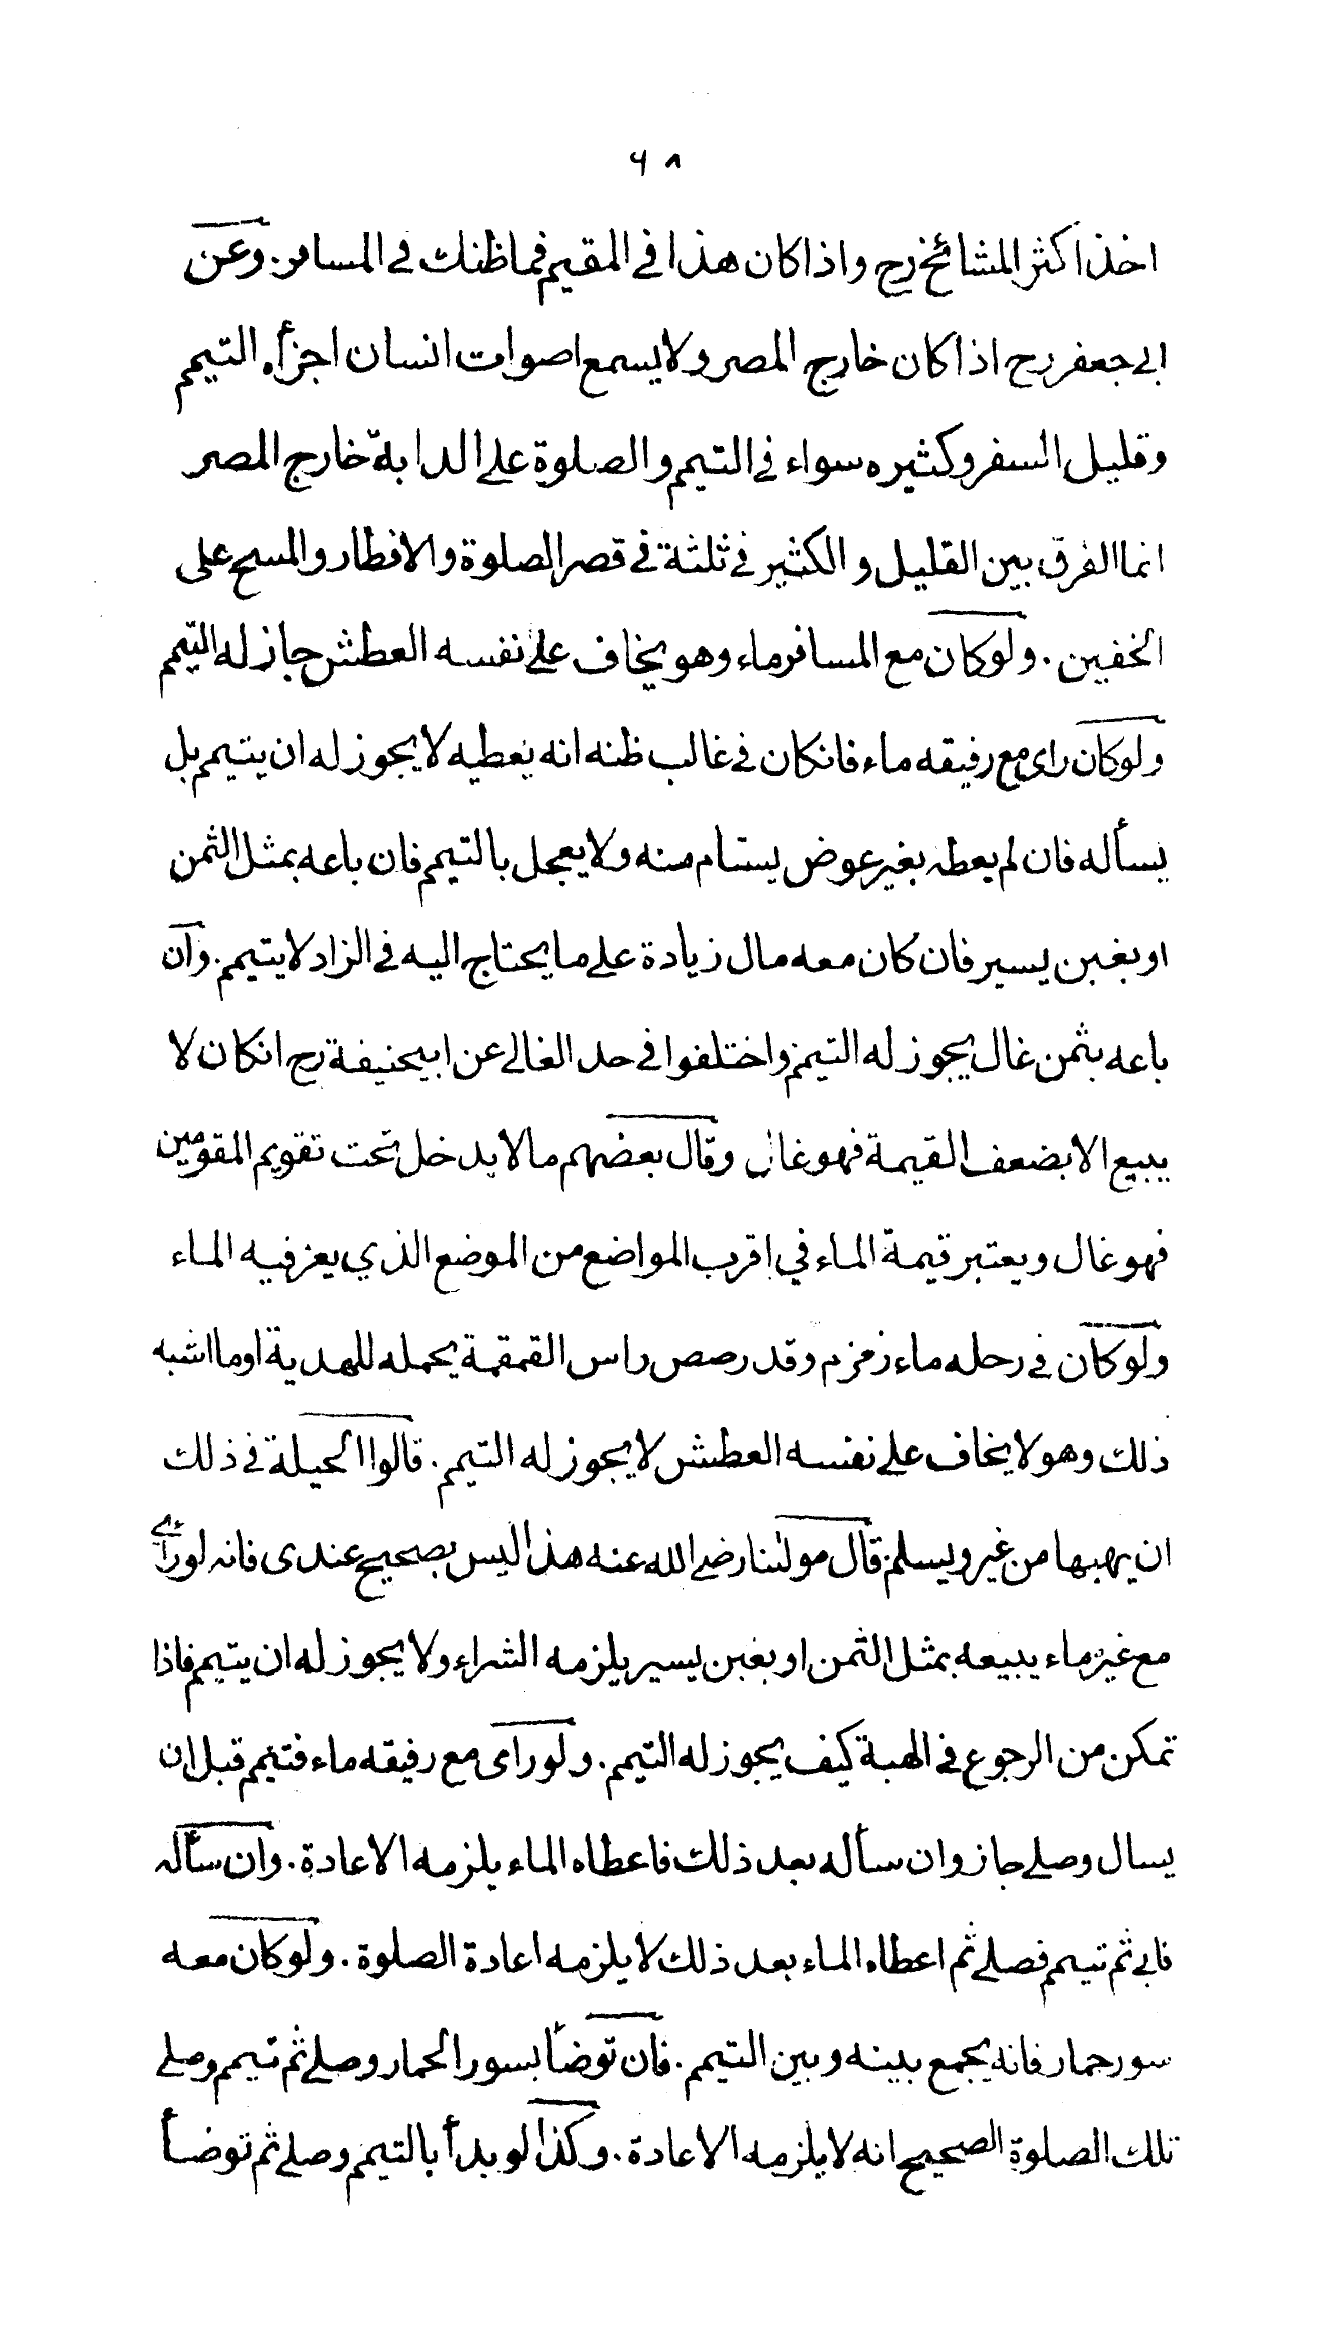 ٦٨
اخذ اكثر المشائخ رح واذا كان هذا في المقيم فما ظنك في المسافر. وعن
ابي جعفر رح اذا كان خارج المصر ولا يسمع اصوات انسان اجزأه التيمم
وقليل السفر وكثيره سواء في التيمم والصلوة على الدابة خارج المصر
انما الفرق بين القليل والكثير في ثلثة في قصر الصلوة والافطار والمسح على
الخفين. ولو كان مع المسافر ماء وهو يخاف على نفسه العطش جاز له التيمم
ولو كان راى مع رفيقه ماء فانكان في غالب ظنه انه يعطيه لا يجوز له ان يتيمم بل
يسأله فان لم يعطه بغير عوض يستام منه ولا يعجل بالتيمم فان باعه بمثل الثمن
او بغبن يسير فان كان معه مال زيادة على ما يحتاج اليه في الزاد لا يتيمم. وان
باعه بثمن غال يجوز له التيمم واختلفوا في حد الغالي عن ابيحنيفة رح انكان لا
يبيع الا بضعف القيمة فهو غال وقال بعضهم ما لا يدخل تحت تقويم المقومين
فهو غال ويعتبر قيمة الماء في اقرب المواضع من الموضع الذي يعز فيه الماء
ولو كان في رحله ماء زمزم وقد رصص راس القمقمة يحمله للهدية او ما اشبه
ذلك وهو لا يخاف على نفسه العطش لا يجوز له التيمم. قالوا الحيلة في ذلك
ان يهبها من غير ويسلم قال مولٰنا رضي الله عنه هذا ليس بصحيح عندى فانه لو رأى
مع غيره ماء يبيعه بمثل الثمن او بغبن يسير يلزمه الشراء ولا يجوز له ان يتيمم فاذا
تمكن من الرجوع في الهبة كيف يجوز له التيمم. ولو راى مع رفيقه ماء فتيمم قبل ان
يسال وصلى جاز وان سأله بعد ذلك فاعطاه الماء يلزمه الاعادة. وان سأله
فابى ثم تيمم فصلى ثم اعطاه الماء بعد ذلك لا يلزمه اعادة الصلوة. ولو كان معه
سور حمار فانه يجمع بينه وبين التيمم. فان توضأ بسور الحمار وصلى ثم تيمم وصلى
تلك الصلوة الصحيح انه لا يلزمه الاعادة. وكذا لو بدأ بالتيمم وصلى ثم توضأ